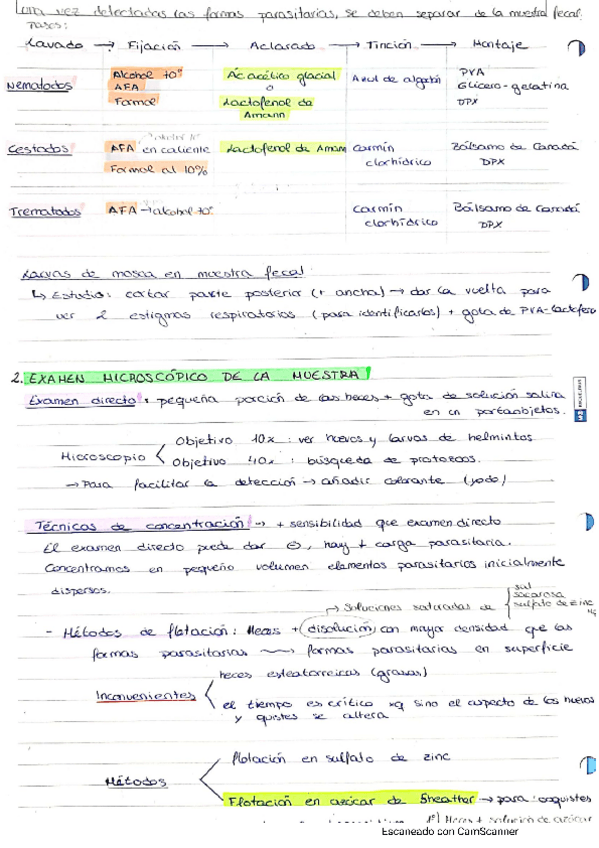 Una vez detectadas las formas parasitarias, se deben separar de la muestra fecal.
Pasos:
Lavado → Fijación → Aclarado → Tinción → Montaje
Nematodos Alcohol 70º Ác acético glacial Azul de algodón PVA
AFA o Glicero-gelatina
Formol Lactofenol de DPX
Amann
alcohol 70º
Cestodos AFA en caliente Lactofenol de Amann Carmín Bálsamo de Canadá
Formol al 10% clorhídrico DPX
Trematodos AFA → alcohol 70º Carmín Bálsamo de Canadá
clorhídrico DPX
Larvas de mosca en muestra fecal
↳ Estudio: cortar parte posterior (+ ancha) → dar la vuelta para
ver 2 estigmas respiratorios (para identificarlos) + gota de PVA-lactofeno
2. EXAMEN MICROSCÓPICO DE LA MUESTRA
Examen directo: pequeña porción de las heces + gota de solución salina
en un portaobjetos.
Objetivo 10x: ver huevos y larvas de helmintos
Microscopio
Objetivo 40x: búsqueda de protozoos.
→ Para facilitar la detección → añadir colorante (yodo)
Técnicas de concentración → + sensibilidad que examen directo
El examen directo puede dar ⊖, hay + carga parasitaria.
Concentramos en pequeño volumen elementos parasitarios inicialmente
dispersos.
sal
sacarosa
→ Soluciones saturadas de sulfato de zinc
- Métodos de flotación: Heces + disolución con mayor densidad que las
formas parasitarias ⟿ formas parasitarias en superficie
heces esteatorreicas (grasas)
Inconvenientes
el tiempo es crítico xq sino el aspecto de los huevos
y quistes se altera
flotación en sulfato de zinc
Métodos
Flotación en azúcar de Sheather → para: ooquistes
1º) Heces + solución de azúcar
Escaneado con CamScanner